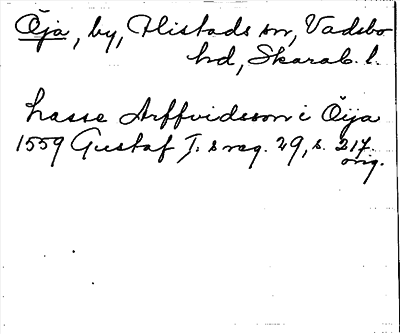 Öja, by, Flistads sn, Vadsbo
hd, Skarab. l.
Lasse Arffvidsson i Öija
1559 Gustaf I:s reg. 29, s. 217.
orig.